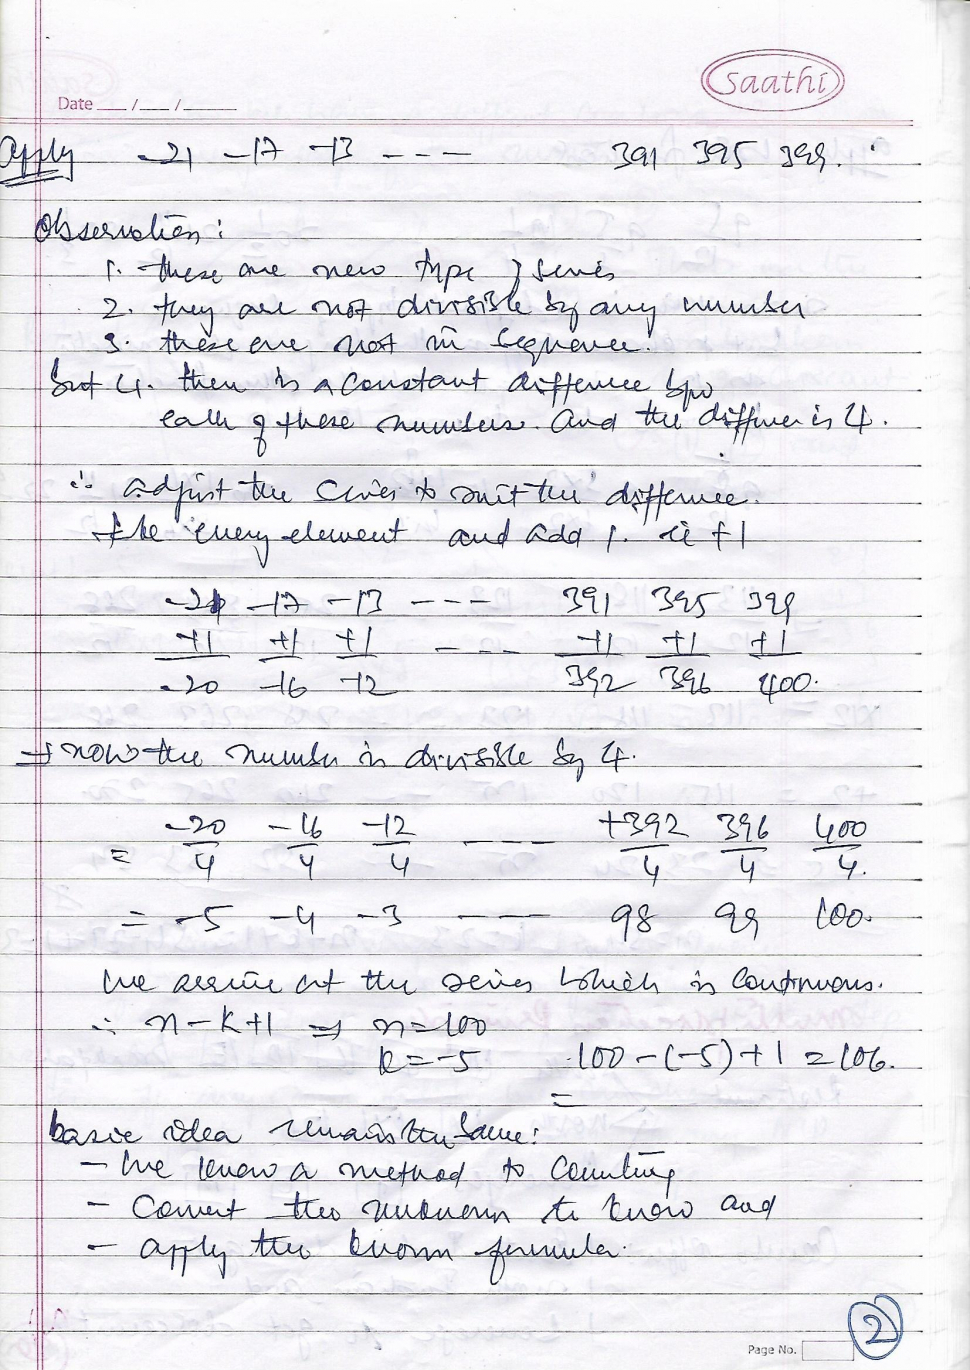 Saathi
Date ___/___/______
Apply -21 -17 -13 --- 391 395 399.
Observation:
1. these are new type of series
2. they are not divisible by any number
3. these are not in sequence.
but 4. there is a constant difference b/w
each of these numbers. and the differne is 4.
∴ adjust the series to suit the difference.
the every element and add 1. ie +1
-21 -17 -13 --- 391 395 399
+1 +1 +1 --- +1 +1 +1
-20 -16 -12 392 396 400.
→ now the number is divisible by 4.
= -20/4 -16/4 -12/4 --- +392/4 396/4 400/4.
= -5 -4 -3 --- 98 99 100.
we arrive at the series which is continuous.
∴ n-k+1 ⇒ n=100
k=-5 100-(-5)+1 = 106.
=
basic idea remains the same:
- we know a method to counting
- convert the unknown to know and
- apply the known formula.
2
Page No.